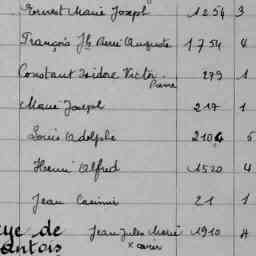 Ernest Marie Joseph 1254 3
François Jh René Auguste 1754 4
Constant Isidore Victor 279 1
Pierre
Marie Joseph 217 1
Louis Adolphe 2104 5
Henri Alfred 1520 4
Jean Casimir 21 1
eye de Jean Jules Marie 1910 4
antois